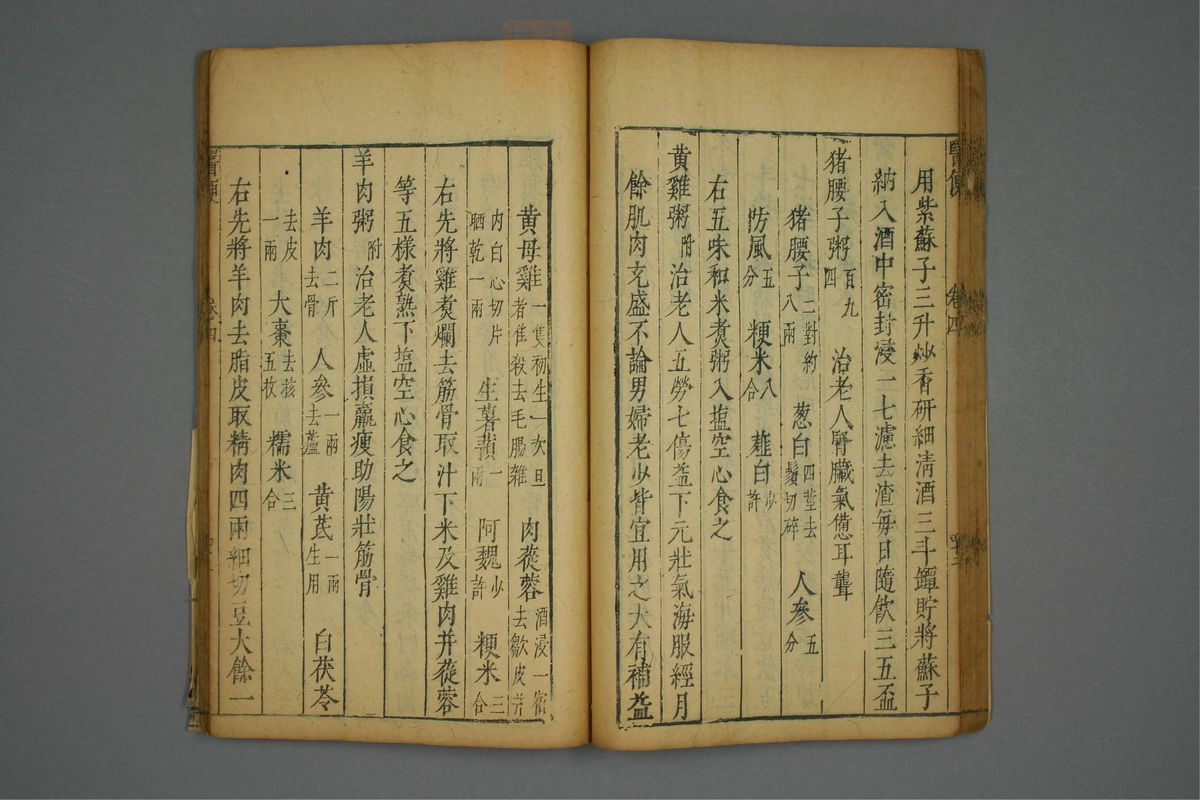 醫便 卷四 四十二
用紫蘇子三升炒香研細清酒三斗罈貯將蘇子
納入酒中密封浸一七濾去渣每日隨飲三五盃
猪腰子粥百九四 治老人腎臟氣憊耳聾
猪腰子二對約八兩 葱白四莖去鬚切碎 人參五分
防風五分 粳米八合 薤白少許
右五味和米煑粥入塩空心食之
黄雞粥附 治老人五勞七傷益下元壯氣海服經月
餘肌肉充盛不論男婦老少皆宜用之大有補益
黄母雞一隻初生一次旦者隹殺去毛腸雜 肉蓯蓉酒浸一宿去皺皮并
内白心切片晒乾一兩 生薯蕷一兩 阿魏少許 粳米三合
右先將雞煑爛去筋骨取汁下米及雞肉并蓯蓉
等五樣煑熟下塩空心食之
羊肉粥附 治老人虛損羸瘦助陽壯筋骨
羊肉二斤去骨 人參一兩去蘆 黄芪一兩生用 白茯苓
去皮一兩 大棗去核五枚 糯米三合
右先將羊肉去脂皮取精肉四兩細切豆大餘一
醫便 卷四